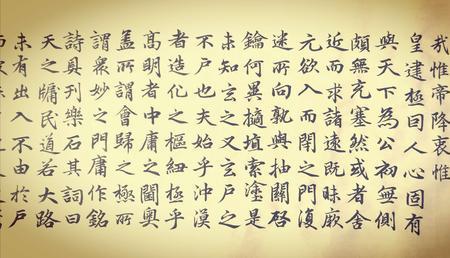 我惟帝降衷惟
皇建極曰人心固有
與天下為公初無側
頗無充塞然或者舍
近而求諸遠既昧厥
元欲入而閉之門復
迷所向孰與抽關啓
鑰何異擿埴索塗是
未知玄之又玄戶之
不戶也夫始乎沖漠
者造化之樞紐極乎
髙明者中庸之閫奧
盖所謂會歸之極所
謂衆妙之門庸作銘
詩具列樂石其詞曰
天之牖民道若大路
未有出入不由於戶